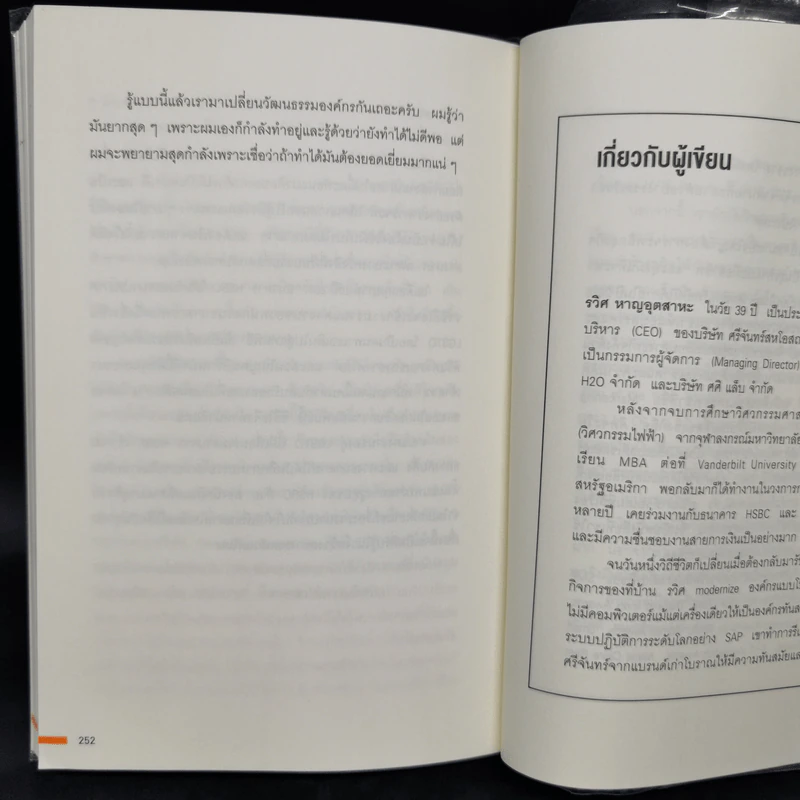 รู้แบบนี้แล้วเรามาเปลี่ยนวัฒนธรรมองค์กรกันเถอะครับ ผมรู้ว่า
มันยากสุด ๆ เพราะผมเองก็กำลังทำอยู่และรู้ด้วยว่ายังทำได้ไม่ดีพอ แต่
ผมจะพยายามสุดกำลังเพราะเชื่อว่าถ้าทำได้มันต้องยอดเยี่ยมมากแน่ ๆ
252
เกี่ยวกับผู้เขียน
รวิศ หาญอุตสาหะ ในวัย 39 ปี เป็นประ
บริหาร (CEO) ของบริษัท ศรีจันทร์สหโอสถ
เป็นกรรมการผู้จัดการ (Managing Director)
H2O จำกัด และบริษัท ศศิ แล็บ จำกัด
หลังจากจบการศึกษาวิศวกรรมศาส
(วิศวกรรมไฟฟ้า) จากจุฬาลงกรณ์มหาวิทยาลัย
เรียน MBA ต่อที่ Vanderbilt University
สหรัฐอเมริกา พอกลับมาก็ได้ทำงานในวงการก
หลายปี เคยร่วมงานกับธนาคาร HSBC และ
และมีความชื่นชอบงานสายการเงินเป็นอย่างมาก
จนวันหนึ่งวิถีชีวิตก็เปลี่ยนเมื่อต้องกลับมารั
กิจการของที่บ้าน รวิศ modernize องค์กรแบบโ
ไม่มีคอมพิวเตอร์แม้แต่เครื่องเดียวให้เป็นองค์กรทันส
ระบบปฏิบัติการระดับโลกอย่าง SAP เขาทำการรี
ศรีจันทร์จากแบรนด์เก่าโบราณให้มีความทันสมัยและ